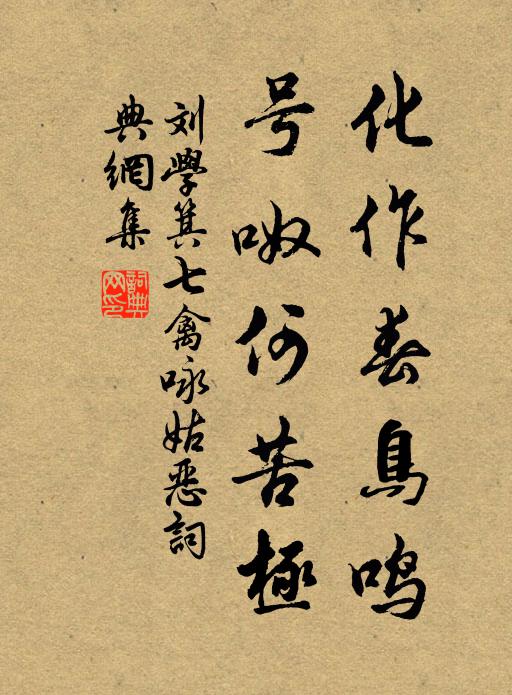 化作春鳥鸣
号呶何苦極
刘學箕七禽咏姑惡詞
典網集
詞典
网印